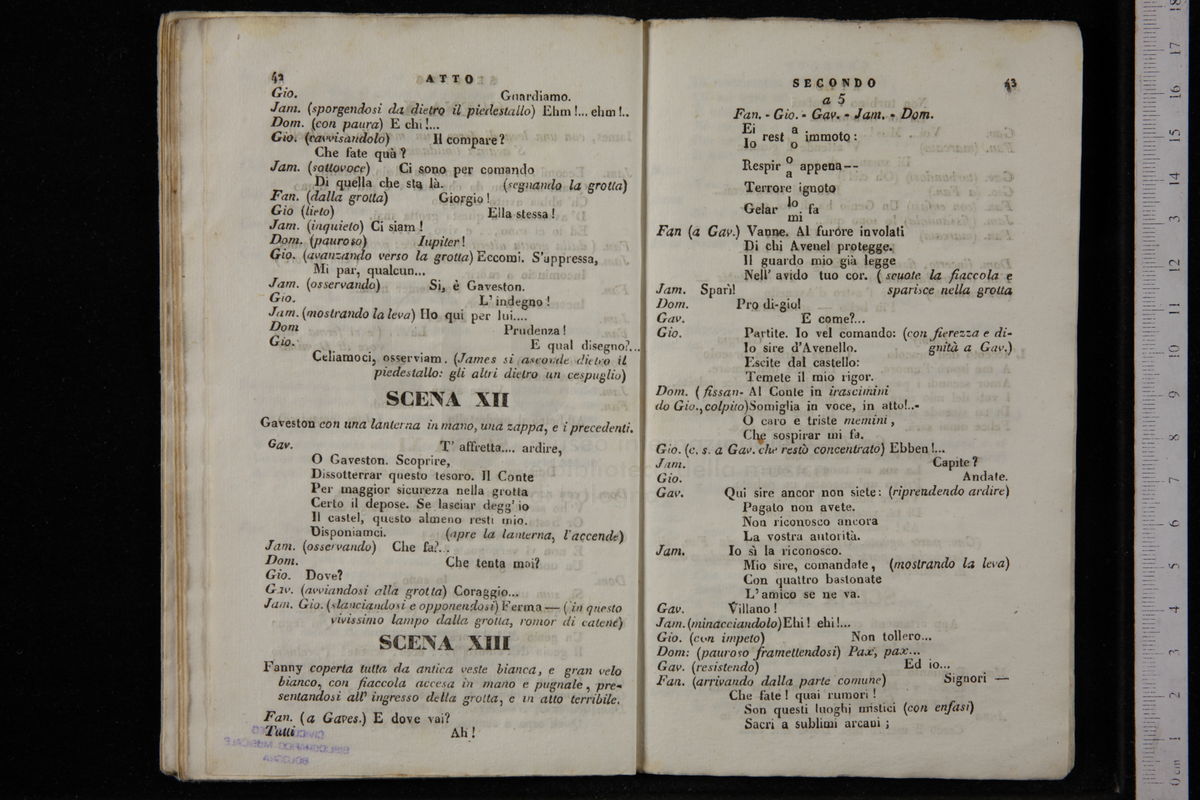 42 ATTO
Gio. Guardiamo.
Jam. (sporgendosi da dietro il piedestallo) Ehm!... ehm!..
Dom. (con paura) E chi!...
Gio. (ravvisandolo) Il compare?
Che fate quà?
Jam. (sottovoce) Ci sono per comando
Di quella che sta là. (segnando la grotta)
Fan. (dalla grotta) Giorgio!
Gio (lieto) Ella stessa!
Jam. (inquieto) Ci siam!
Dom. (pauroso) Iupiter!
Gio. (avanzando verso la grotta) Eccomi. S'appressa,
Mi par, qualcun...
Jam. (osservando) Si, è Gaveston.
Gio. L'indegno!
Jam. (mostrando la leva) Ho qui per lui....
Dom Prudenza!
Gio. E qual disegno?...
Celiamoci, osserviam. (James si asconde dietro il
piedestallo: gli altri dietro un cespuglio)
SCENA XII
Gaveston con una lanterna in mano, una zappa, e i precedenti.
Gav. T' affretta.... ardire,
O Gaveston. Scoprire,
Dissotterrar questo tesoro. Il Conte
Per maggior sicurezza nella grotta
Certo il depose. Se lasciar degg' io
Il castel, questo almeno resti mio.
Disponiamci. (apre la lanterna, l'accende)
Jam. (osservando) Che fa?...
Dom. Che tenta mai?
Gio. Dove?
Gav. (avviandosi alla grotta) Coraggio...
Jam. Gio. (slanciandosi e opponendosi) Ferma — (in questo
vivissimo lampo dalla grotta, romor di catene)
SCENA XIII
Fanny coperta tutta da antica veste bianca, e gran velo
bianco, con fiaccola accesa in mano e pugnale, pre-
sentandosi all' ingresso della grotta, e in atto terribile.
Fan. (a Gaves.) E dove vai?
Tutti Ah!
CIVICO
BIBLIOGRAFICO MUSICALE
BOLOGNA
SECONDO 43
a 5
Fan. - Gio. - Gav. - Jam. - Dom.
Ei a
rest immoto:
Io o
o
Respir appena--
a
Terrore ignoto
lo
Gelar fa
mi
Fan (a Gav.) Vanne. Al furore involati
Di chi Avenel protegge.
Il guardo mio già legge
Nell' avido tuo cor. (scuote la fiaccola e
Jam. Sparì! sparisce nella grotta
Dom. Pro di-gio!
Gav. E come?...
Gio. Partite. Io vel comando: (con fierezza e di-
Io sire d'Avenello. gnità a Gav.)
Escite dal castello:
Temete il mio rigor.
Dom. (fissan- Al Conte in irascimini
do Gio., colpito) Somiglia in voce, in atto!..-
O caro e triste memini,
Che sospirar mi fa.
Gio. (c. s. a Gav. che restò concentrato) Ebben!...
Jam. Capite?
Gio. Andate.
Gav. Qui sire ancor non siete: (riprendendo ardire)
Pagato non avete.
Non riconosco ancora
La vostra autorità.
Jam. Io sì la riconosco.
Mio sire, comandate, (mostrando la leva)
Con quattro bastonate
L'amico se ne va.
Gav. Villano!
Jam. (minacciandolo) Ehi! ehi!...
Gio. (con impeto) Non tollero...
Dom: (pauroso framettendosi) Pax, pax...
Gav. (resistendo) Ed io...
Fan. (arrivando dalla parte comune) Signori —
Che fate! quai rumori!
Son questi luoghi mistici (con enfasi)
Sacri a sublimi arcani;
0 cm 1 2 3 4 5 6 7 8 9 10 11 12 13 14 15 16 17 18